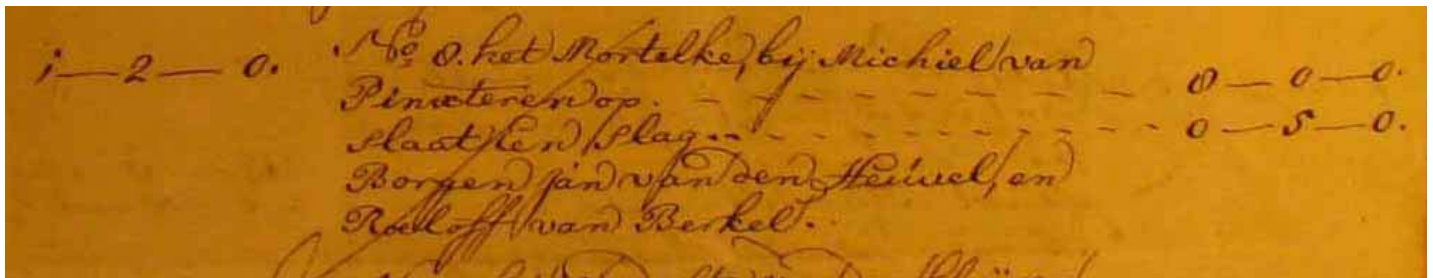 i — 2 — 0. No 8. het Mortelke, bij Michiel van
Pinxteren op. - - - - - - - - - - 8 — 0 — 0.
slaat hen slag .. - - - - - - - - - - 0 — 5 — 0.
Borgen jan van den Heuvel, en
Roeloff van Berkel.